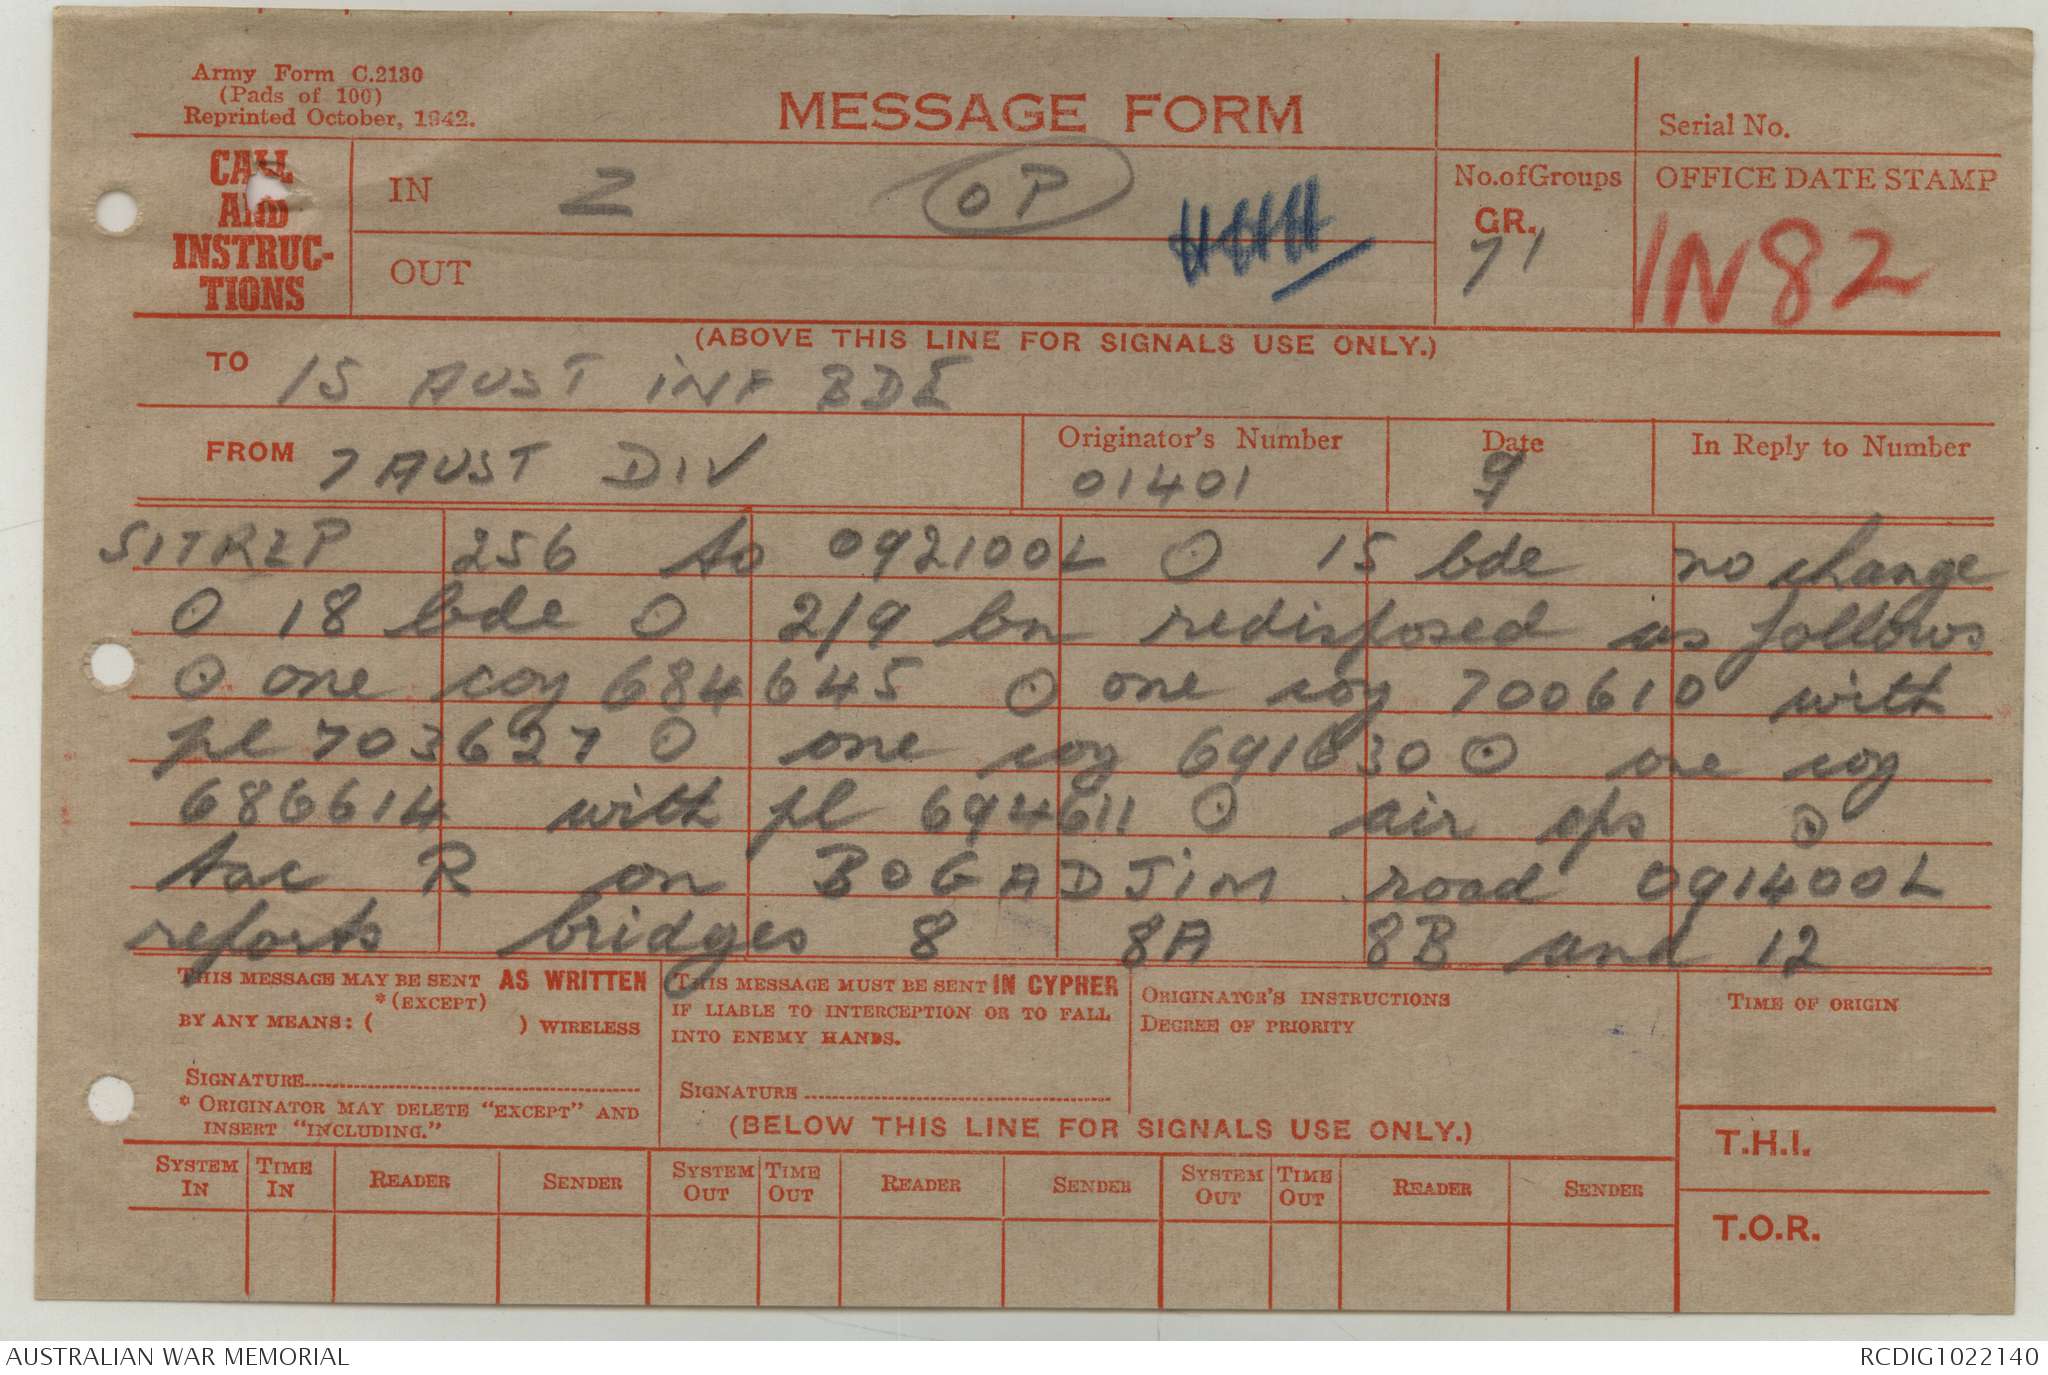 Army Form C.2130
(Pads of 100)
Reprinted October, 1942.
MESSAGE FORM
Serial No.
CALL AND INSTRUC-TIONS
IN Z OP
OUT
No.ofGroups
GR.
71
OFFICE DATE STAMP
IN 82
(ABOVE THIS LINE FOR SIGNALS USE ONLY.)
TO 15 AUST INF BDE
FROM 7 AUST DIV
Originator's Number
01401
Date
9
In Reply to Number
SITREP 256 to 092100L O 15 bde no change
O 18 bde O 2/9 bn redisposed as follows
O one coy 684645 O one coy 700610 with
pl 703627 O one coy 691630 O one coy
686614 with pl 694611 O air ops O
tac R on BOGADJIM road 091400L
reports bridges 8 8A 8B and 12
THIS MESSAGE MAY BE SENT AS WRITTEN
*(EXCEPT)
BY ANY MEANS: ( ) WIRELESS
SIGNATURE
* ORIGINATOR MAY DELETE "EXCEPT" AND
INSERT "INCLUDING."
THIS MESSAGE MUST BE SENT IN CYPHER
IF LIABLE TO INTERCEPTION OR TO FALL
INTO ENEMY HANDS.
SIGNATURE
ORIGINATOR'S INSTRUCTIONS
DEGREE OF PRIORITY
TIME OF ORIGIN
(BELOW THIS LINE FOR SIGNALS USE ONLY.)
T.H.I.
T.O.R.
SYSTEM IN
TIME IN
READER
SENDER
SYSTEM OUT
TIME OUT
READER
SENDER
SYSTEM OUT
TIME OUT
READER
SENDER
AUSTRALIAN WAR MEMORIAL
RCDIG1022140